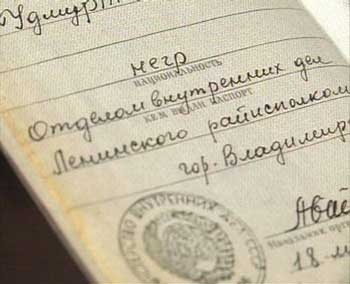 Удмурт
негр
НАЦИОНАЛЬНОСТЬ
Отделом внутренних дел
КЕМ ВЫДАН ПАСПОРТ
Ленинского райисполком
гор. Владимир
Авай
Начальник орг
18-м
ВНУТРЕННИХ ДЕЛ СССР